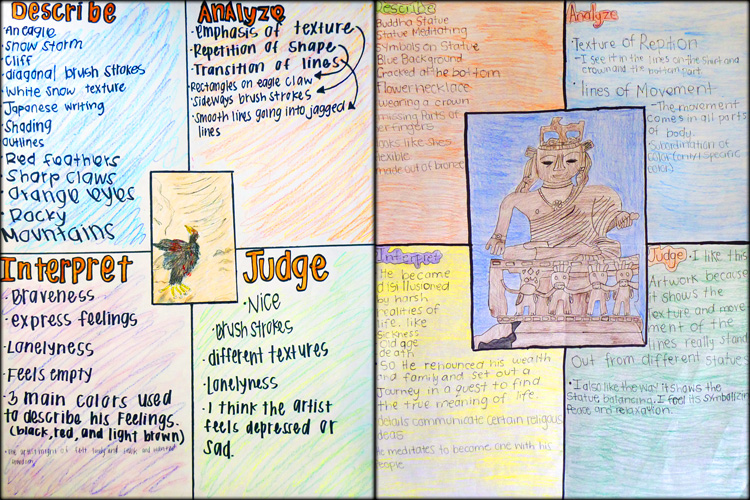 Describe
• An eagle
• Snow storm
• Cliff
• diagonal brush strokes
• White snow texture
• Japanese writing
• Shading
• outlines
• Red feathers
• Sharp claws
• Orange eyes
• Rocky
Mountains
Analyze
• emphasis of texture
• Repetition of shape
• Transition of lines
• Rectangles on eagle claw
• Sideways brush strokes
• Smooth lines going into jagged
lines
Interpret
• Braveness
• express feelings
• Lonelyness
• Feels empty
• 3 main colors used
to describe his feelings.
(black, red, and light brown)
Judge
• Nice
• Brush strokes
• different textures
• lonelyness
• I think the artist
feels depressed or
sad.
Describe
Buddha Statue
Statue Meditating
Symbols on Statue
Blue Background
Cracked at the bottom
Flower necklace
wearing a crown
missing Parts of
her fingers
looks like shes
flexible
made out of bronze
Analyze
• Texture of Reption
- I see it in the lines on the shirt and
crown and the bottom part.
• Lines of Movement
- The movement
comes in all parts
of body.
Subordination of
color (only 1 specific
color)
Interpret
He became
disillusioned
by harsh
realities of
life. like
Sickness
Old age
death
• So He renounced his wealth
and family and set out a
Journey in a quest to find
the true meaning of life.
details communicate certain religious
ideas
He meditates to become one with his
People
Judge • I like this
Artwork because
it shows the
Texture and move
ment of the
lines really stand
Out from different statues
• I also like the way it shows the
Statue balancing. I feel its symbolism
Peace and relaxation.